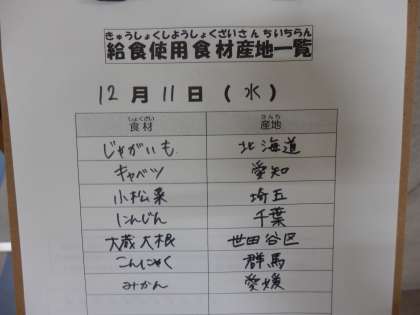 きゅうしょくしようしょくざいさんちいちらん
給食使用食材産地一覧
12月11日(水)
しょくざい さんち
食材 産地
じゃがいも 北海道
キャベツ 愛知
小松菜 埼玉
にんじん 千葉
大蔵大根 世田谷区
こんにゃく 群馬
みかん 愛媛